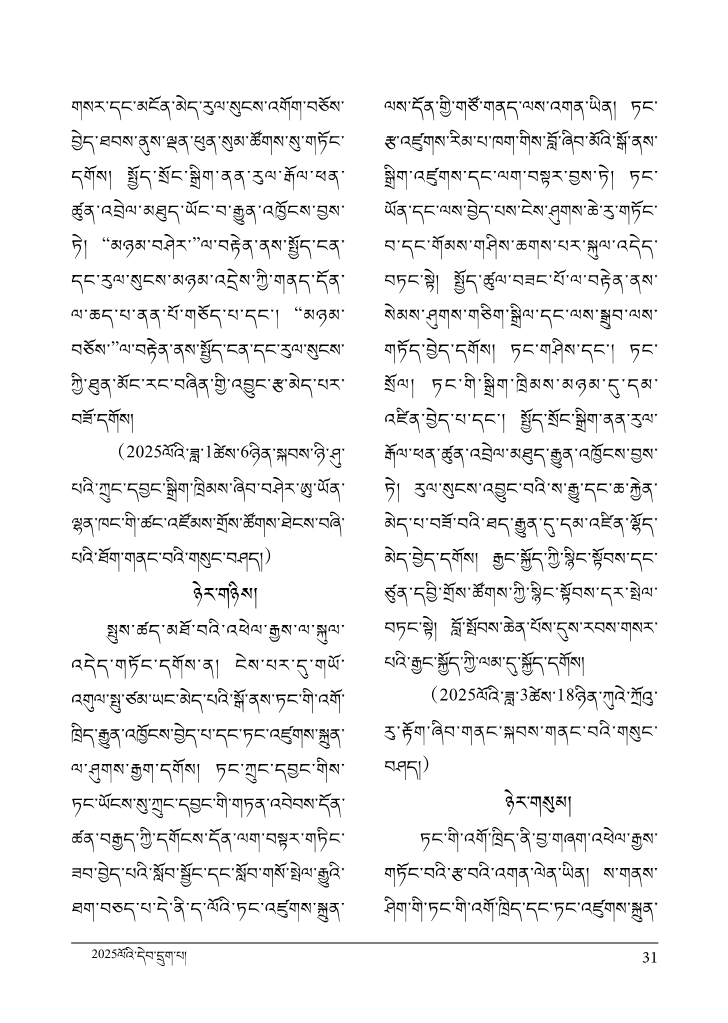 གསར་དང་མངོན་མེད་རུལ་སུངས་འགོག་བཅོས་
བྱེད་ཐབས་ནུས་ལྡན་ཕུན་སུམ་ཚོགས་སུ་གཏོང་
དགོས། སྤྱོད་སྲོང་སྒྲིག་ནན་རུལ་རྒོལ་ཕན་
ཚུན་འབྲེལ་མཐུད་ཡོང་བ་རྒྱུན་འཁྱོངས་བྱས་
ཏེ། “མཉམ་བཤེར་”ལ་བརྟེན་ནས་སྤྱོད་ངན་
དང་རུལ་སུངས་མཉམ་འདྲེས་ཀྱི་གནད་དོན་
ལ་ཆད་པ་ནན་པོ་གཅོད་པ་དང་། “མཉམ་
བཅོས་”ལ་བརྟེན་ནས་སྤྱོད་ངན་དང་རུལ་སུངས་
ཀྱི་ཐུན་མོང་རང་བཞིན་གྱི་འབྱུང་རྩ་མེད་པར་
བཟོ་དགོས།
（2025ལོའི་ཟླ་1ཚེས་6ཉིན་སྐབས་ཉི་ཤུ་
པའི་ཀྲུང་དབྱང་སྒྲིག་ཁྲིམས་ཞིབ་བཤེར་ཨུ་ཡོན་
ལྷན་ཁང་གི་ཚང་འཛོམས་གྲོས་ཚོགས་ཐེངས་བཞི་
པའི་ཐོག་གནང་བའི་གསུང་བཤད།）
ཉེར་གཉིས།
སྤུས་ཚད་མཐོ་བའི་འཕེལ་རྒྱས་ལ་སྐུལ་
འདེད་གཏོང་དགོས་ན། ངེས་པར་དུ་གཡོ་
འགུལ་སྤུ་ཙམ་ཡང་མེད་པའི་སྒོ་ནས་ཏང་གི་འགོ་
ཁྲིད་རྒྱུན་འཁྱོངས་བྱེད་པ་དང་ཏང་འཛུགས་སྐྲུན་
ལ་ཤུགས་རྒྱག་དགོས། ཏང་ཀྲུང་དབྱང་གིས་
ཏང་ཡོངས་སུ་ཀྲུང་དབྱང་གི་གཏན་འབེབས་དོན་
ཚན་བརྒྱད་ཀྱི་དགོངས་དོན་ལག་བསྟར་གཏིང་
ཟབ་བྱེད་པའི་སློབ་སྦྱོང་དང་སློབ་གསོ་སྤེལ་རྒྱུའི་
ཐག་བཅད་པ་དེ་ནི་ད་ལོའི་ཏང་འཛུགས་སྐྲུན་
ལས་དོན་གྱི་གཙོ་གནད་ལས་འགན་ཡིན། ཏང་
རྩ་འཛུགས་རིམ་པ་ཁག་གིས་བློ་ཞིབ་མོའི་སྒོ་ནས་
སྒྲིག་འཛུགས་དང་ལག་བསྟར་བྱས་ཏེ། ཏང་
ཡོན་དང་ལས་བྱེད་པས་ངེས་ཤུགས་ཆེ་རུ་གཏོང་
བ་དང་གོམས་གཤིས་ཆགས་པར་སྐུལ་འདེད་
བཏང་སྟེ། སྤྱོད་ཚུལ་བཟང་པོ་ལ་བརྟེན་ནས་
སེམས་ཤུགས་གཅིག་སྒྲིལ་དང་ལས་སྒྲུབ་ལས་
གཏོད་བྱེད་དགོས། ཏང་གཤིས་དང་། ཏང་
སྲོལ། ཏང་གི་སྒྲིག་ཁྲིམས་མཉམ་དུ་དམ་
འཛིན་བྱེད་པ་དང་། སྤྱོད་སྲོང་སྒྲིག་ནན་རུལ་
རྒོལ་ཕན་ཚུན་འབྲེལ་མཐུད་རྒྱུན་འཁྱོངས་བྱས་
ཏེ། རུལ་སུངས་འབྱུང་བའི་ས་རྒྱུ་དང་ཆ་རྐྱེན་
མེད་པ་བཟོ་བའི་ཐད་རྒྱུན་དུ་དམ་འཛིན་ལྷོད་
མེད་བྱེད་དགོས། རྒྱང་སྐྱོད་ཀྱི་སྙིང་སྟོབས་དང་
ཙུན་དབྱི་གྲོས་ཚོགས་ཀྱི་སྙིང་སྟོབས་དར་སྤེལ་
བཏང་སྟེ། བློ་སྤོབས་ཆེན་པོས་དུས་རབས་གསར་
པའི་རྒྱང་སྐྱོད་ཀྱི་ལམ་དུ་སྐྱོད་དགོས།
（2025ལོའི་ཟླ་3ཚེས་18ཉིན་ཀུའེ་ཀྲོའུ་
རུ་རྟོག་ཞིབ་གནང་སྐབས་གནང་བའི་གསུང་
བཤད།）
ཉེར་གསུམ།
ཏང་གི་འགོ་ཁྲིད་ནི་བྱ་གཞག་འཕེལ་རྒྱས་
གཏོང་བའི་རྩ་བའི་འགན་ལེན་ཡིན། ས་གནས་
ཤིག་གི་ཏང་གི་འགོ་ཁྲིད་དང་ཏང་འཛུགས་སྐྲུན་
2025ལོའི་དེབ་དྲུག་པ།
31